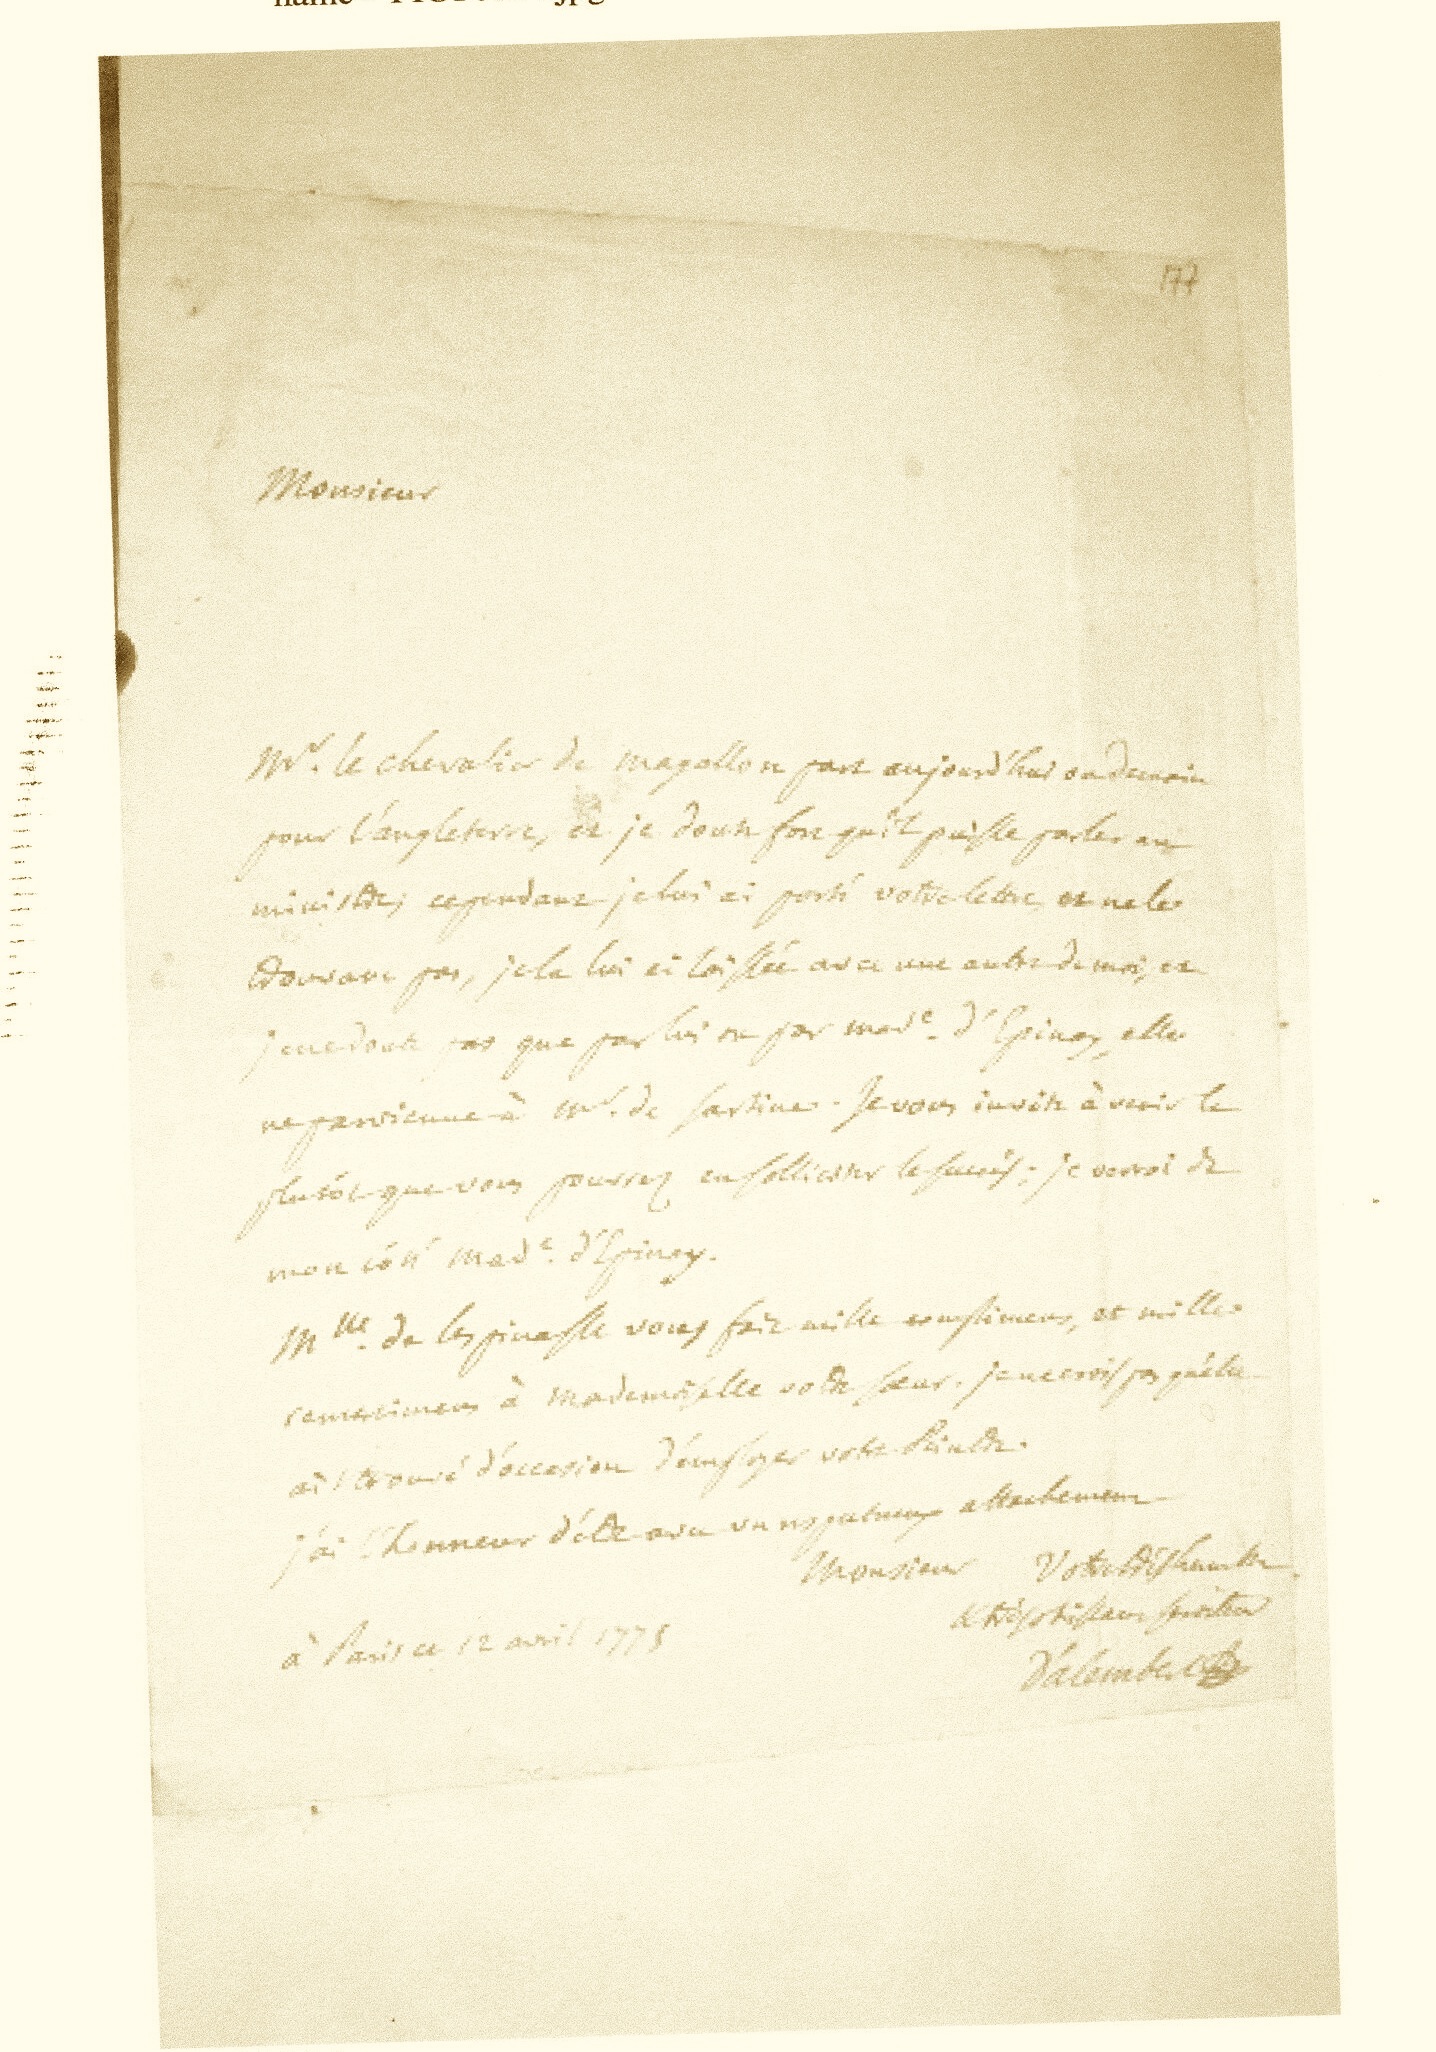 177
Monsieur
Mr. le chevalier de magallon part aujourd'hui ou demain
pour l'angleterre, et je doute fort qu'il puisse parler au
ministre; cependant je lui ai porté votre lettre, et ne le
trouvant pas, je la lui ai laissée avec une autre de moi, et
je ne doute pas que par lui ou par made. d'Epinay, elle
ne parvienne à Mr. de Sartine. Je vous invite à venir le
plutôt que vous pourrez en solliciter le succès; je verrai de
mon côté made. d'Epinay.
Mlle. de lespinasse vous fait mille complimens, et mille
remercimens à Mademoiselle votre soeur. je ne crois pas qu'elle
ait trouvé d'occasion d'employer votre Peintre.
j'ai l'honneur d'être avec un respectueux attachement
Monsieur Votre très humble
et très obéissant serviteur
à Paris ce 12 avril 1775
D'alembert